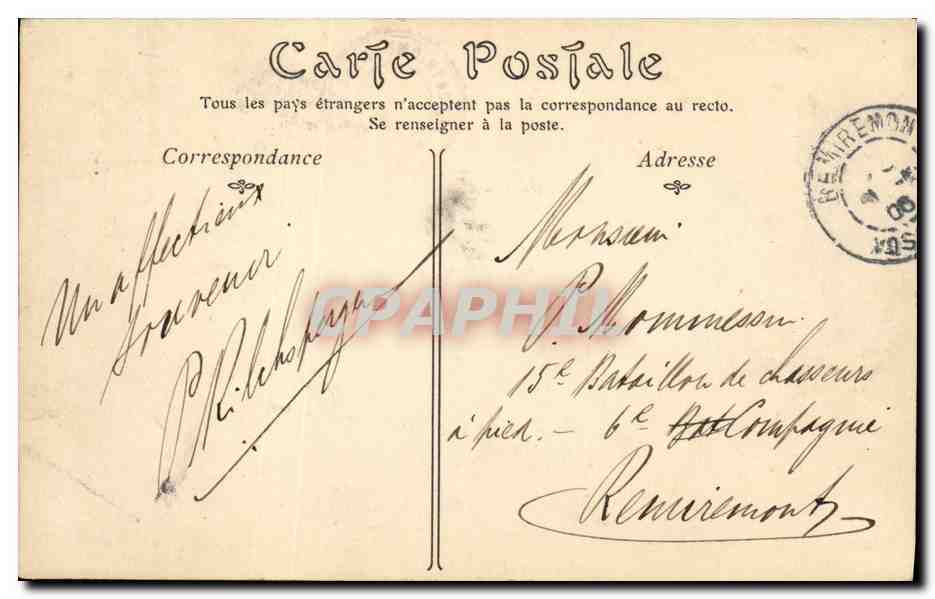 Carte Postale
Tous les pays étrangers n'acceptent pas la correspondance au recto.
Se renseigner à la poste.
Correspondance
Adresse
REMIREMONT
06
Un affectueux
souvenir
Monsieur
P. Mommessin.
15e Bataillon de chasseurs
à pied. – 6e Bat Compagnie
Remiremont
CPAPHIL